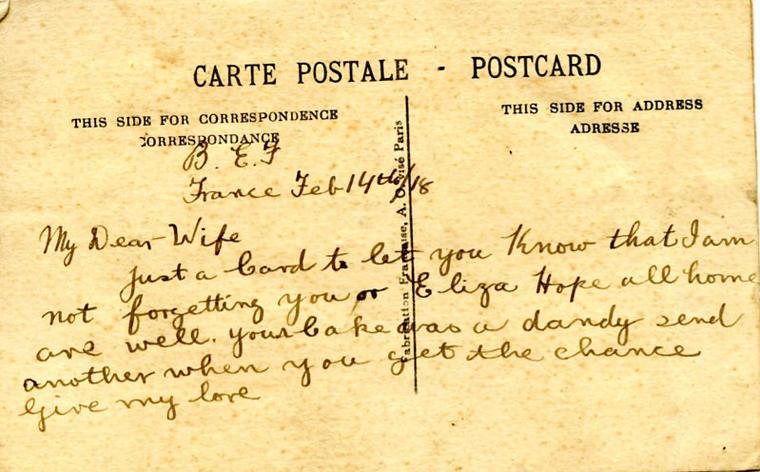 CARTE POSTALE - POSTCARD
THIS SIDE FOR CORRESPONDENCE
CORRESPONDANCE
THIS SIDE FOR ADDRESS
ADRESSE
B. E. F
France Feb 14th/18
My Dear Wife
Just a Card to let you Know that I am
not forgetting you or Eliza Hope all home
are well. your Cake was a dandy send
another when you get the chance
Give my love
Fabrication Française, A. Paris